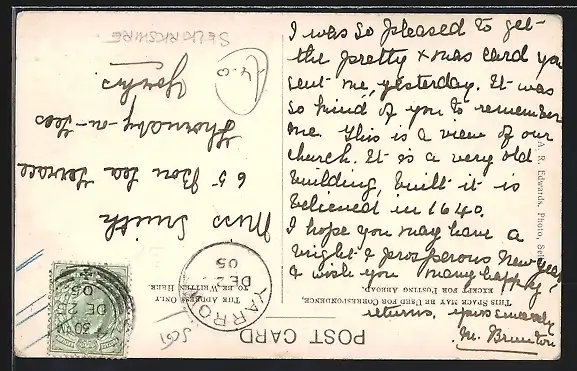 I was so pleased to get
the pretty xmas card you
sent me, yesterday. It was
so kind of you to remember
me. This is a view of our
church. It is a very old
building, built it is
believed in 1640.
I hope you may have a
bright & prosperous New Year
& wish you many happy
returns. yours sincerely
M. Brunton
POST CARD
THIS SPACE MAY BE USED FOR CORRESPONDENCE,
EXCEPT FOR POSTING ABROAD.
THE ADDRESS ONLY
TO BE WRITTEN HERE.
A. R. Edwards, Photo,
YARROW
DE
05
DE
05
Miss Smith
65 Bon Lea Terrace
Thornaby-on-Tees
Yorks.
4.0
SELKIRKSHIRE